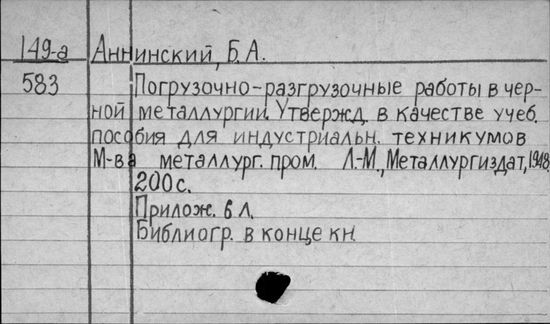 149-а Аннинский, Б.А.
583 Погрузочно-разгрузочные работы в чер-
ной металлургии. Утвержд. в качестве учеб.
пособия для индустриальн. техникумов
М-ва металлург. пром. Л.-М., Металлургиздат, 1948.
200 с.
Прилож. 6 л.
Библиогр. в конце кн.